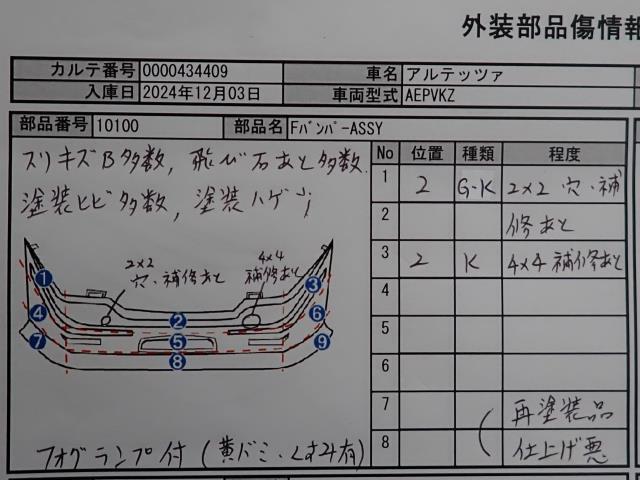 外装部品傷情報
カルテ番号 0000434409 車名 アルテッツァ
入庫日 2024年12月03日 車両型式 AEPVKZ
部品番号 10100 部品名 Fバンパ-ASSY
スリキズB多数, 飛び石あと多数.
塗装ヒビ多数, 塗装ハゲ小
No 位置 種類 程度
1 2 G・K 2×2 穴、補
2 修あと
3 2 K 4×4 補修あと
4
5
6
7 再塗装品
8 仕上げ悪
2×2
穴、補修あと
4×4
補修あと
1 2 3
4 5 6
7 8 9
フォグランプ付 (黄バミ、くすみ有)